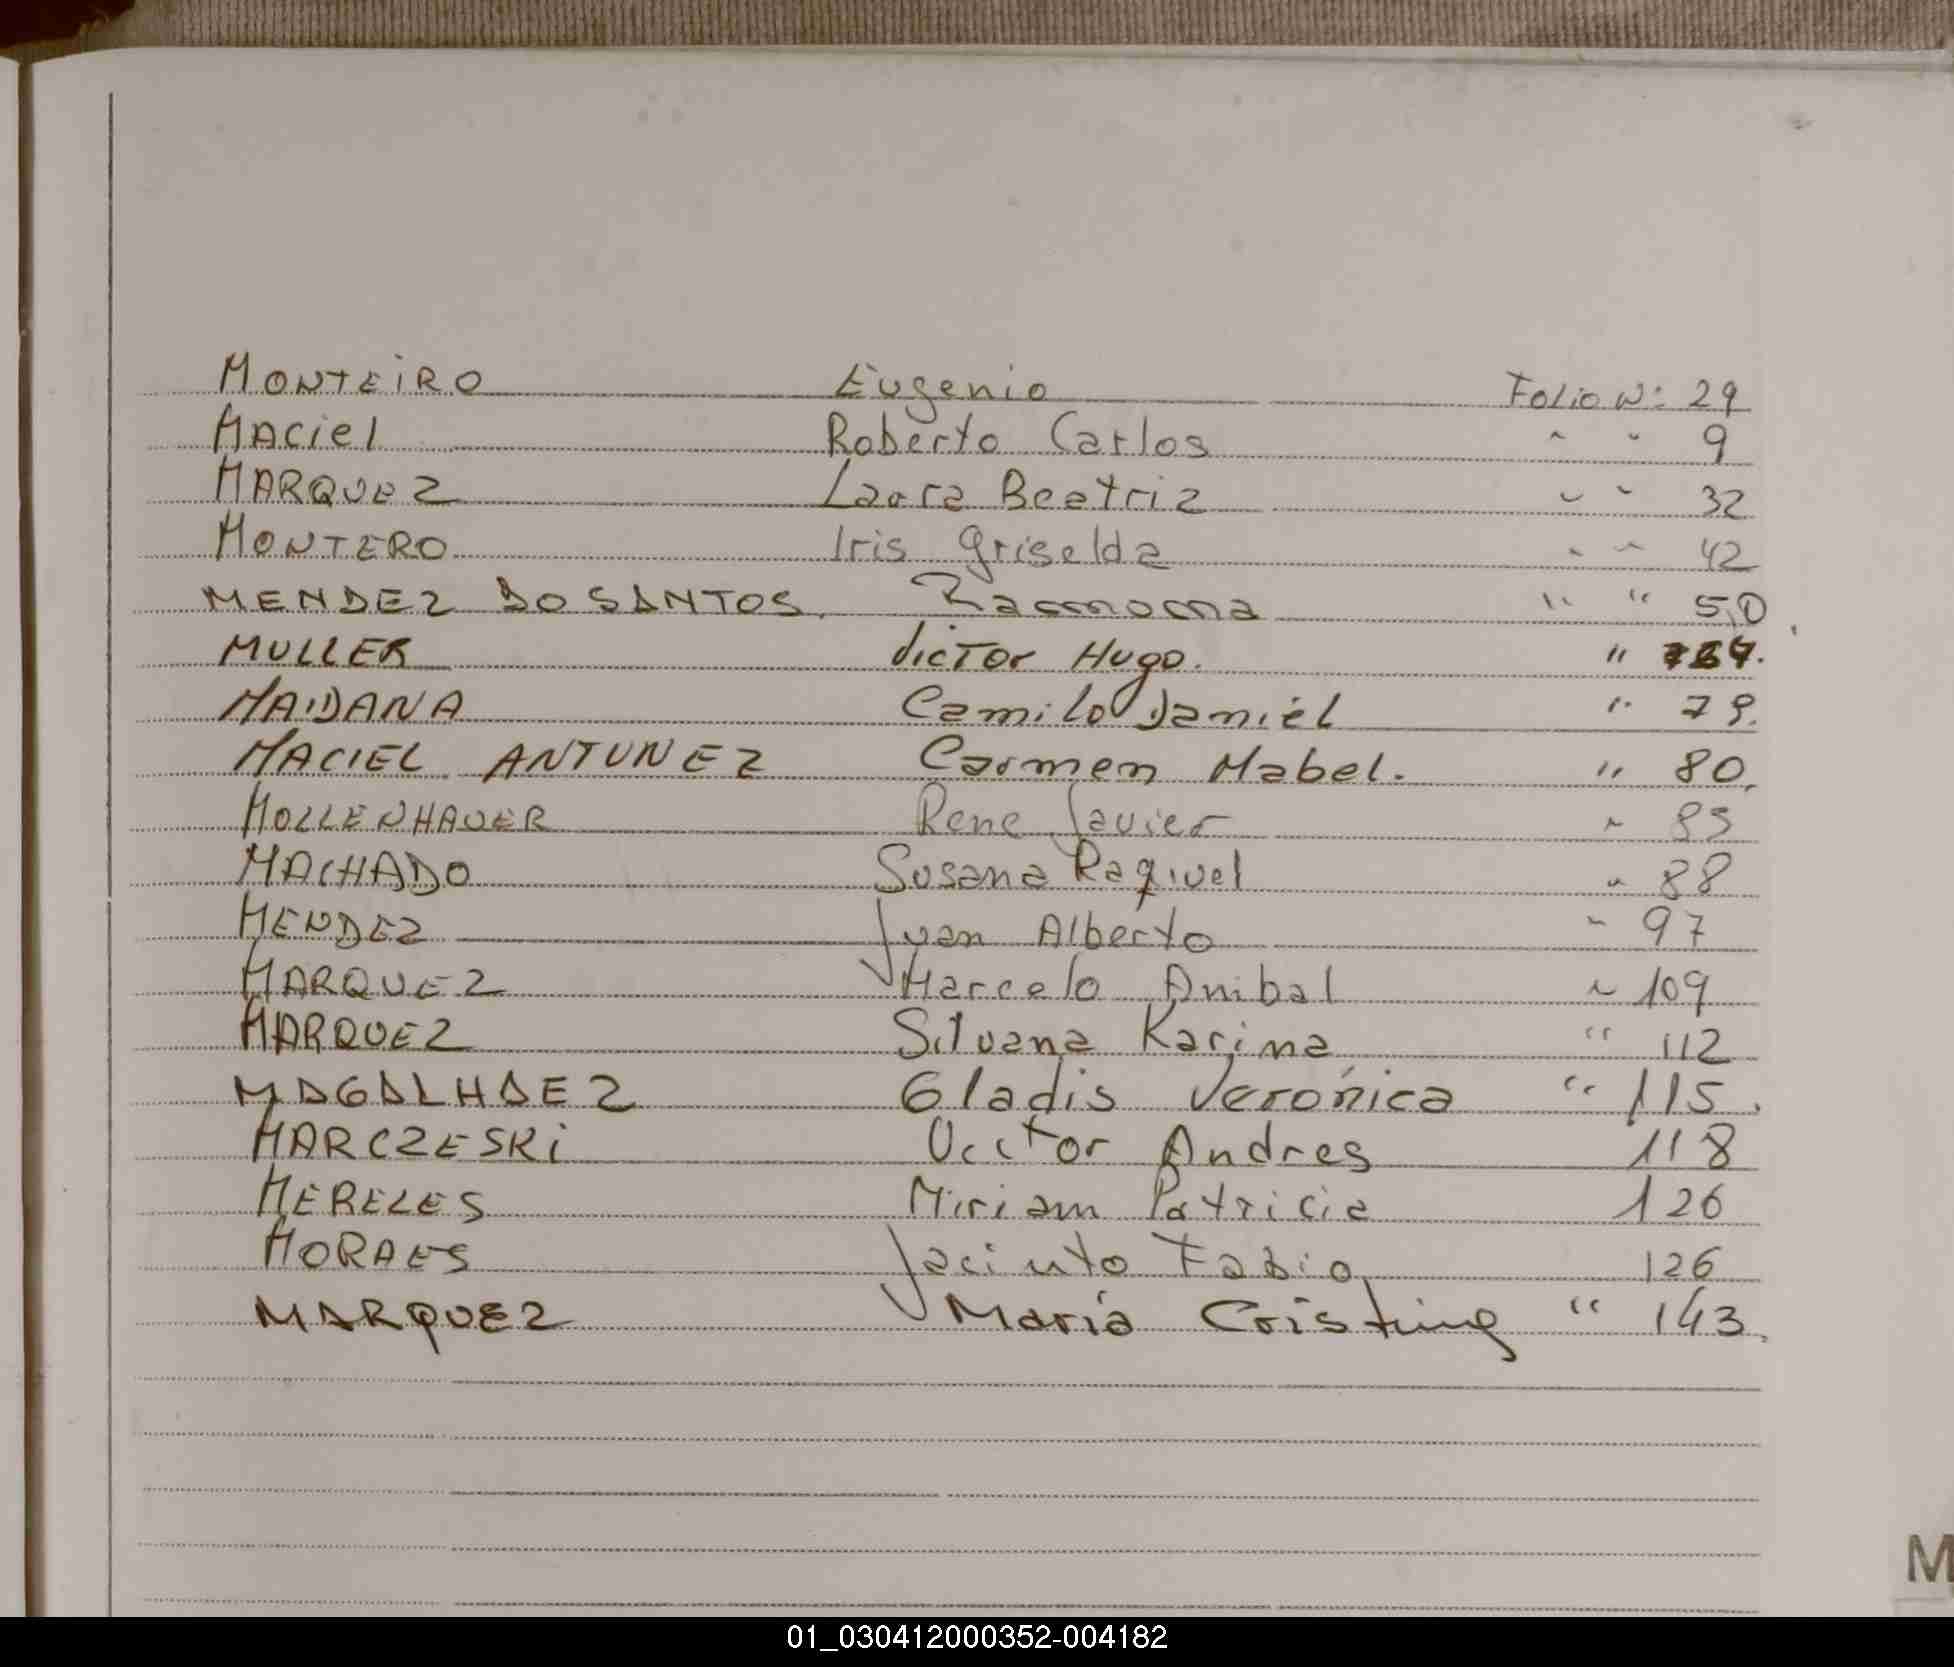 MONTEIRO Eugenio Folio N: 29
MACiel Roberto Carlos " " 9
MARQUEZ Laura Beatriz " " 32
MONTERO Iris Griselda " " 42
MENDEZ DO SANTOS. Ramona " " 50
MULLER Victor Hugo. "
MAIDANA Camilo Daniel " 79.
MACIEL ANTUNEZ Carmen Mabel. " 80.
MOLLENHAUER Rene Javier " 85
MACHADO Susana Raquel " 88
MENDEZ Juan Alberto " 97
MARQUEZ Marcelo Anibal " 109
MARQUEZ Silvana Karina " 112
MAGALHAEZ Gladis Verónica " 115.
MARCZESKi Victor Andres 118
MERELES Miriam Patricia 126
MORAES Jacinto Fabio 126
MARQUEZ María Cristina " 143.
M
01_030412000352-004182